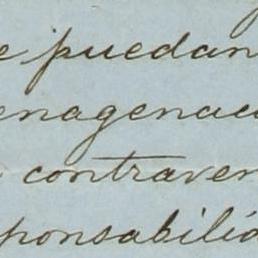 e puedan
enagenac
contraven
ponsabilid